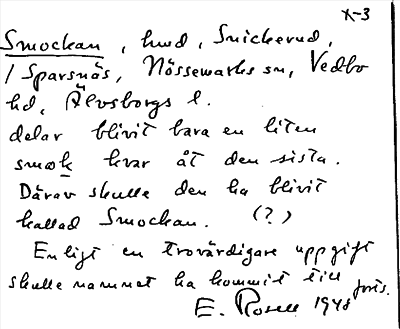 X-3
Smockan, hmd, Snickerud,
/ Sparsnäs, Nössemarks sn, Vedbo
hd, Älvsborgs l.
delar blivit bara en liten
smock kvar åt den sista.
Därav skulle den ha blivit
kallad Smockan. (?)
Enligt en trovärdigare uppgift
skulle namnet ha kommit till
E. Rosell 1948